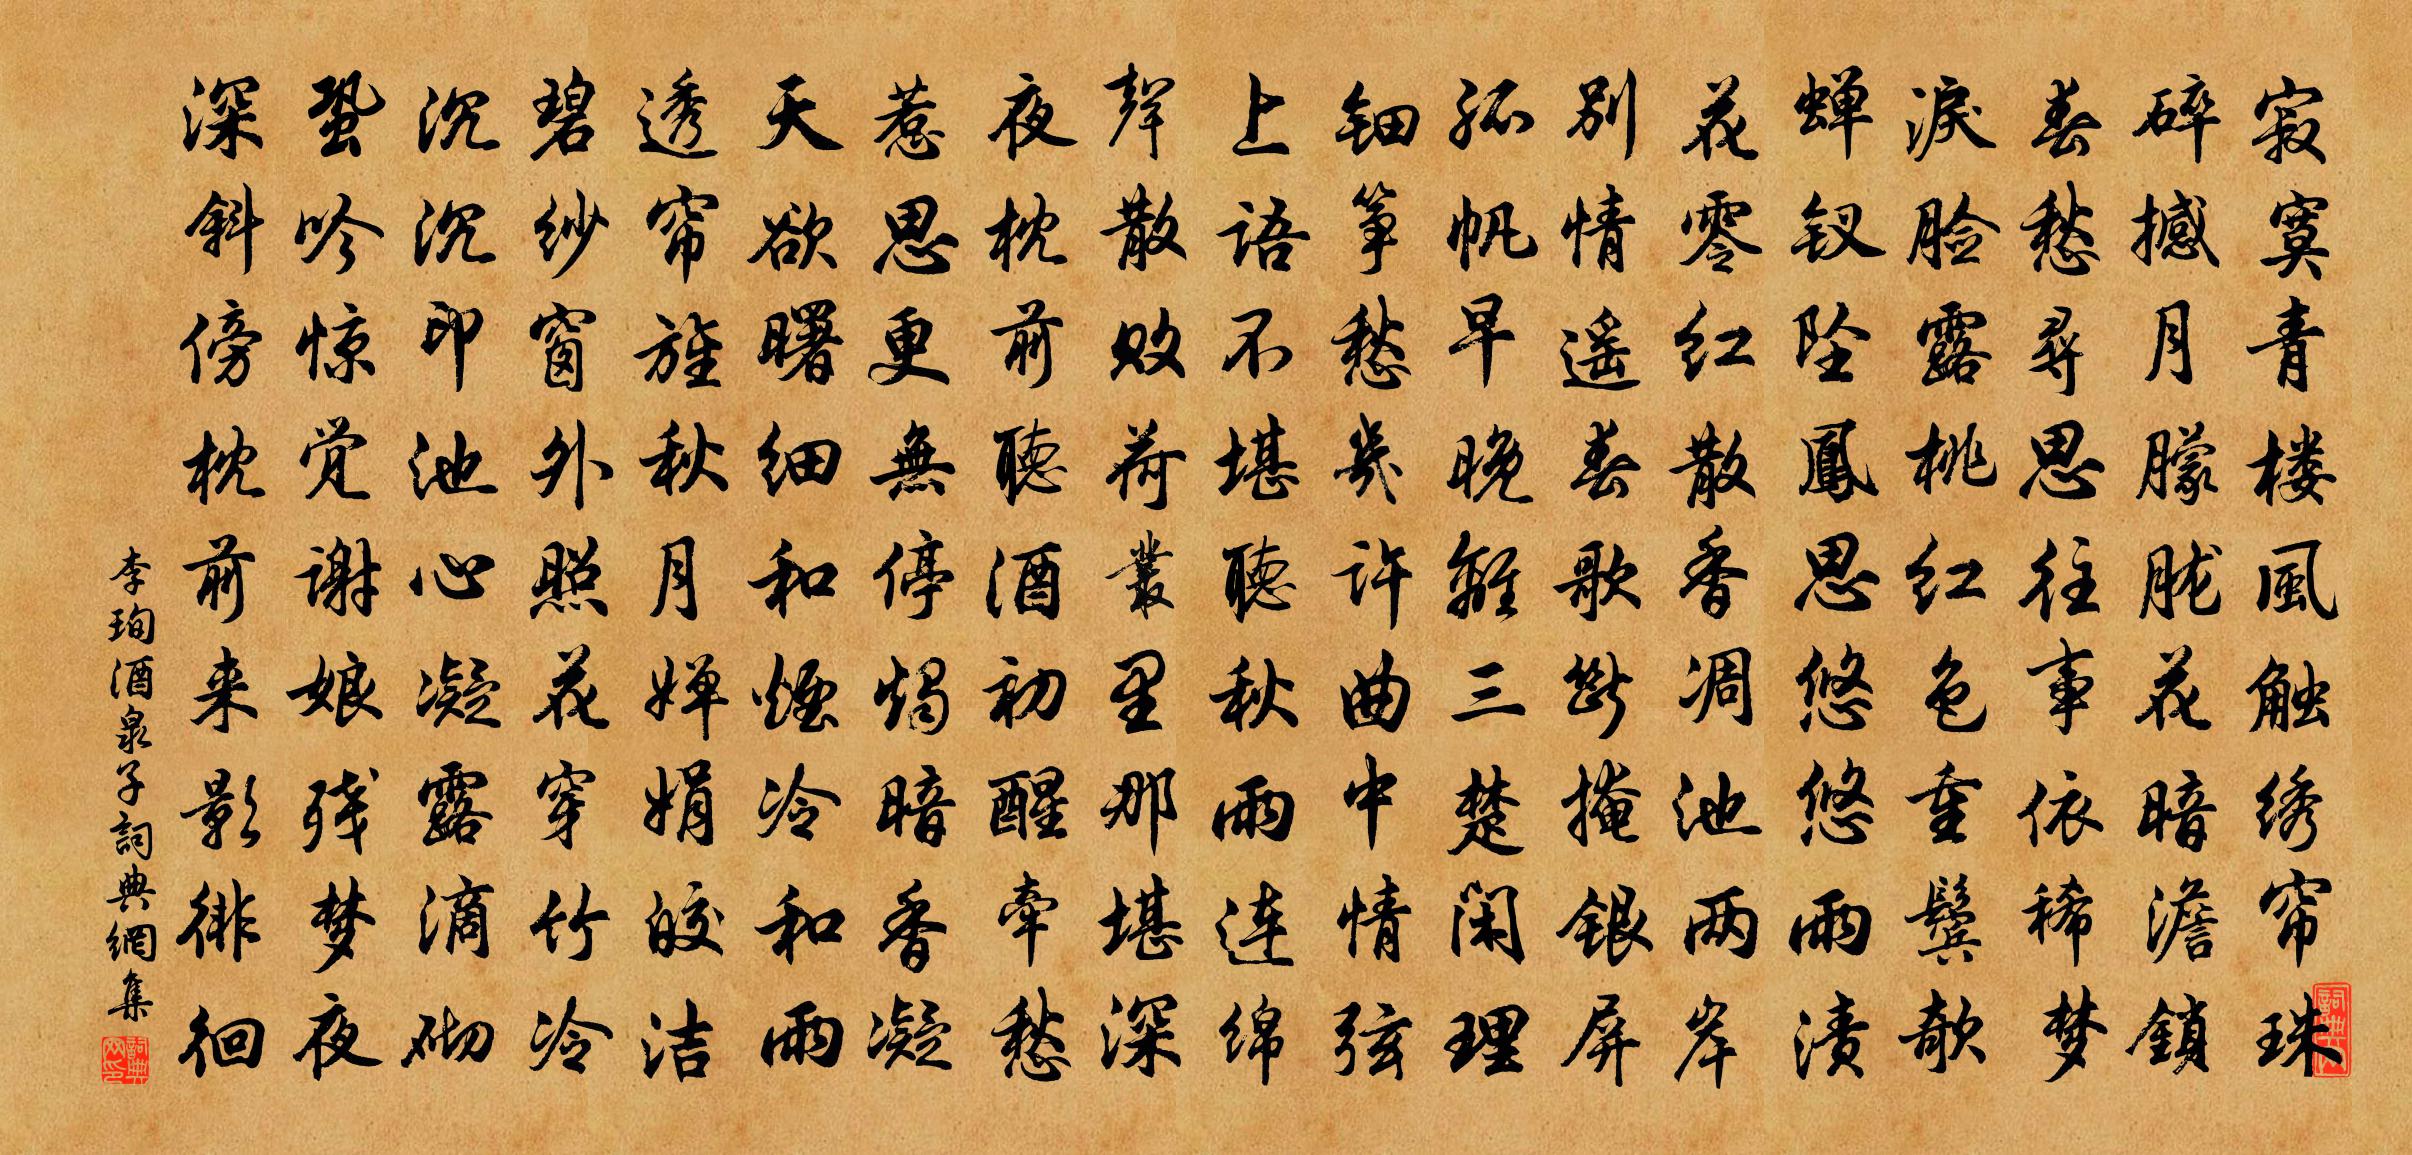 寂寞青楼風触绣帘珠
碎撼月朦胧花暗澹鎖
春愁尋思往事依稀梦
淚脸露桃红色重鬓欹
蝉钗坠鳳思悠悠雨渍
花零红散香凋池两岸
别情遥春歌断掩銀屏
孤帆早晚離三楚闲理
钿筝愁幾许曲中情弦
上语不堪聽秋雨连绵
聲散败荷叢里那堪深
夜枕前聽酒初醒牵愁
惹思更無停燭暗香凝
天欲曙细和煙冷和雨
透帘旌秋月婵娟皎洁
碧纱窗外照花穿竹冷
沉沉印池心凝露滴砌
蛩吟惊觉谢娘残梦夜
深斜傍枕前来影徘徊
李珣酒泉子詞典網集